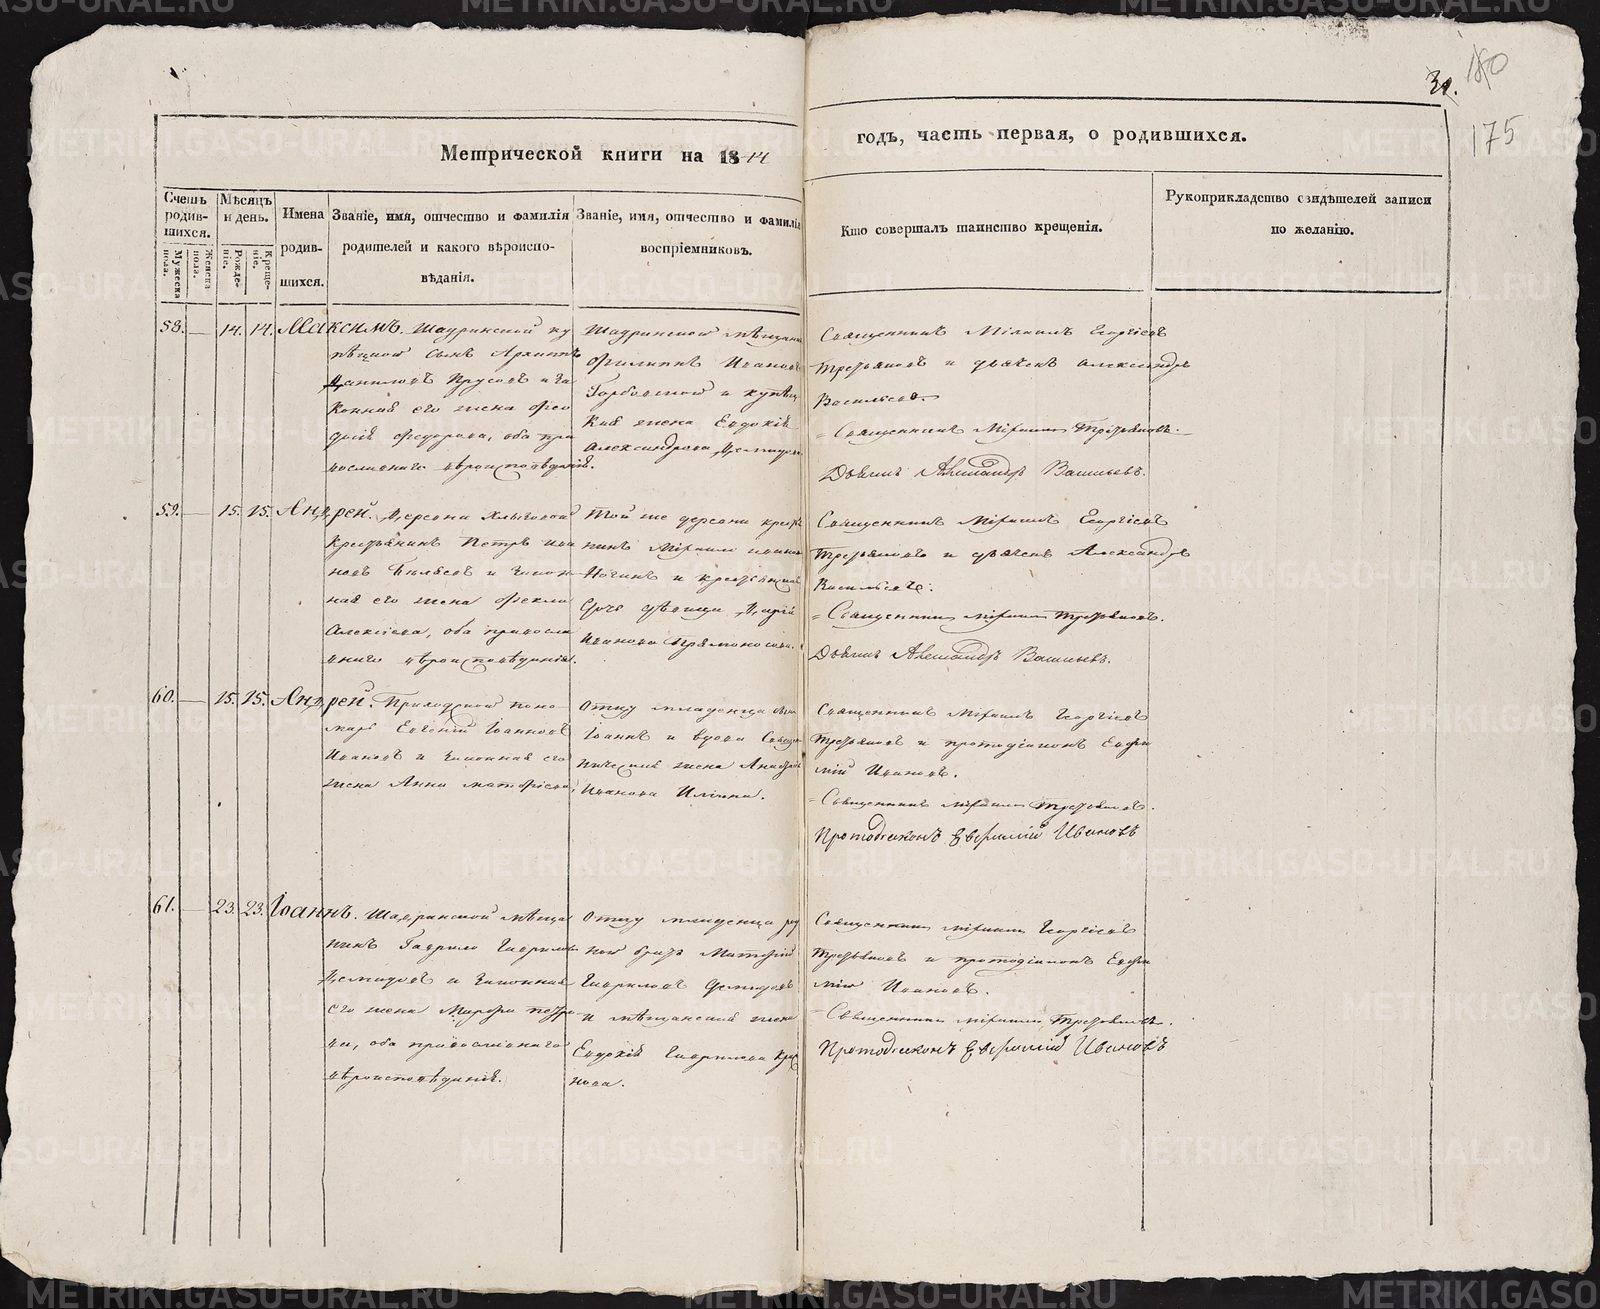 31.
180
175
Метрической книги на 1844
годъ, часть первая, о родившихся.
Счетъ родив-шихся.
Мужеска пола.
Женска пола.
Мѣсяцъ и день.
Рожде-ніе.
Креще-ніе.
Имена родив-шихся.
Званіе, имя, отчество и фамилія
родителей и какого вѣроиспо-
вѣданія.
Званіе, имя, отчество и фамилія
воспріемниковъ.
Кто совершалъ таинство крещенія.
Рукоприкладство свидѣтелей записи
по желанію.
58. — 14. 14. Максимъ. Шадринской ку
пецкой сынъ Архиппъ
Даниловъ Прусовъ и за
конная его жена Фео
досія Федорова, оба пра
вославнаго вѣроисповѣданія.
Шадринской мѣщанинъ
Филиппъ Ивановъ
и купец
кая жена Евдокія
Александрова
Священникъ Михаилъ Георгіевъ
Третьяковъ и дьячекъ Александръ
Васильевъ.
Священникъ Михаилъ Третьяковъ.
Дьячекъ Александръ Васильевъ.
59. — 15. 15. Андрей. Деревни
Крестьянинъ Петръ Ива
новъ и закон
ная его жена Фекла
Алексіева, оба правосла
внаго вѣроисповѣданія.
Той же деревни крестья
нинъ Михаилъ Иванов
и крестьянская
дочь дѣвица Дарія
Иванова
Священникъ Михаилъ Георгіевъ
Третьяковъ и дьячекъ Александръ
Васильевъ.
Священникъ Михаилъ Третьяковъ.
Дьячекъ Александръ Васильевъ.
60. — 15. 15. Андрей. Приходской поно
марь Евгеній Іоанновъ
Ивановъ и законная его
жена Анна Матфіева,
Отцу младенца
Іоаннъ и вдова Священ
ническая жена
Иванова Ильина.
Священникъ Михаилъ Георгіевъ
Третьяковъ и протодіаконъ Евфи
мій Ивановъ.
Священникъ Михаилъ Третьяковъ.
Протодіаконъ Евфимій Ивановъ
61. — 23. 23. Іоаннъ. Шадринской мѣща
нинъ Гаврило Гаврилов
Демидовъ и законная
его жена Марфа Петро
ва, оба православнаго
вѣроисповѣданія.
Отцу младенца род
ной братъ Матфій
Гавриловъ Демидовъ
и мѣщанская жена
Евдокія Гаврилова
нова.
Священникъ Михаилъ Георгіевъ
Третьяковъ и протодіаконъ Евфи
мій Ивановъ.
Священникъ Михаилъ Третьяковъ.
Протодіаконъ Евфимій Ивановъ
METRIKI.GASO-URAL.RU